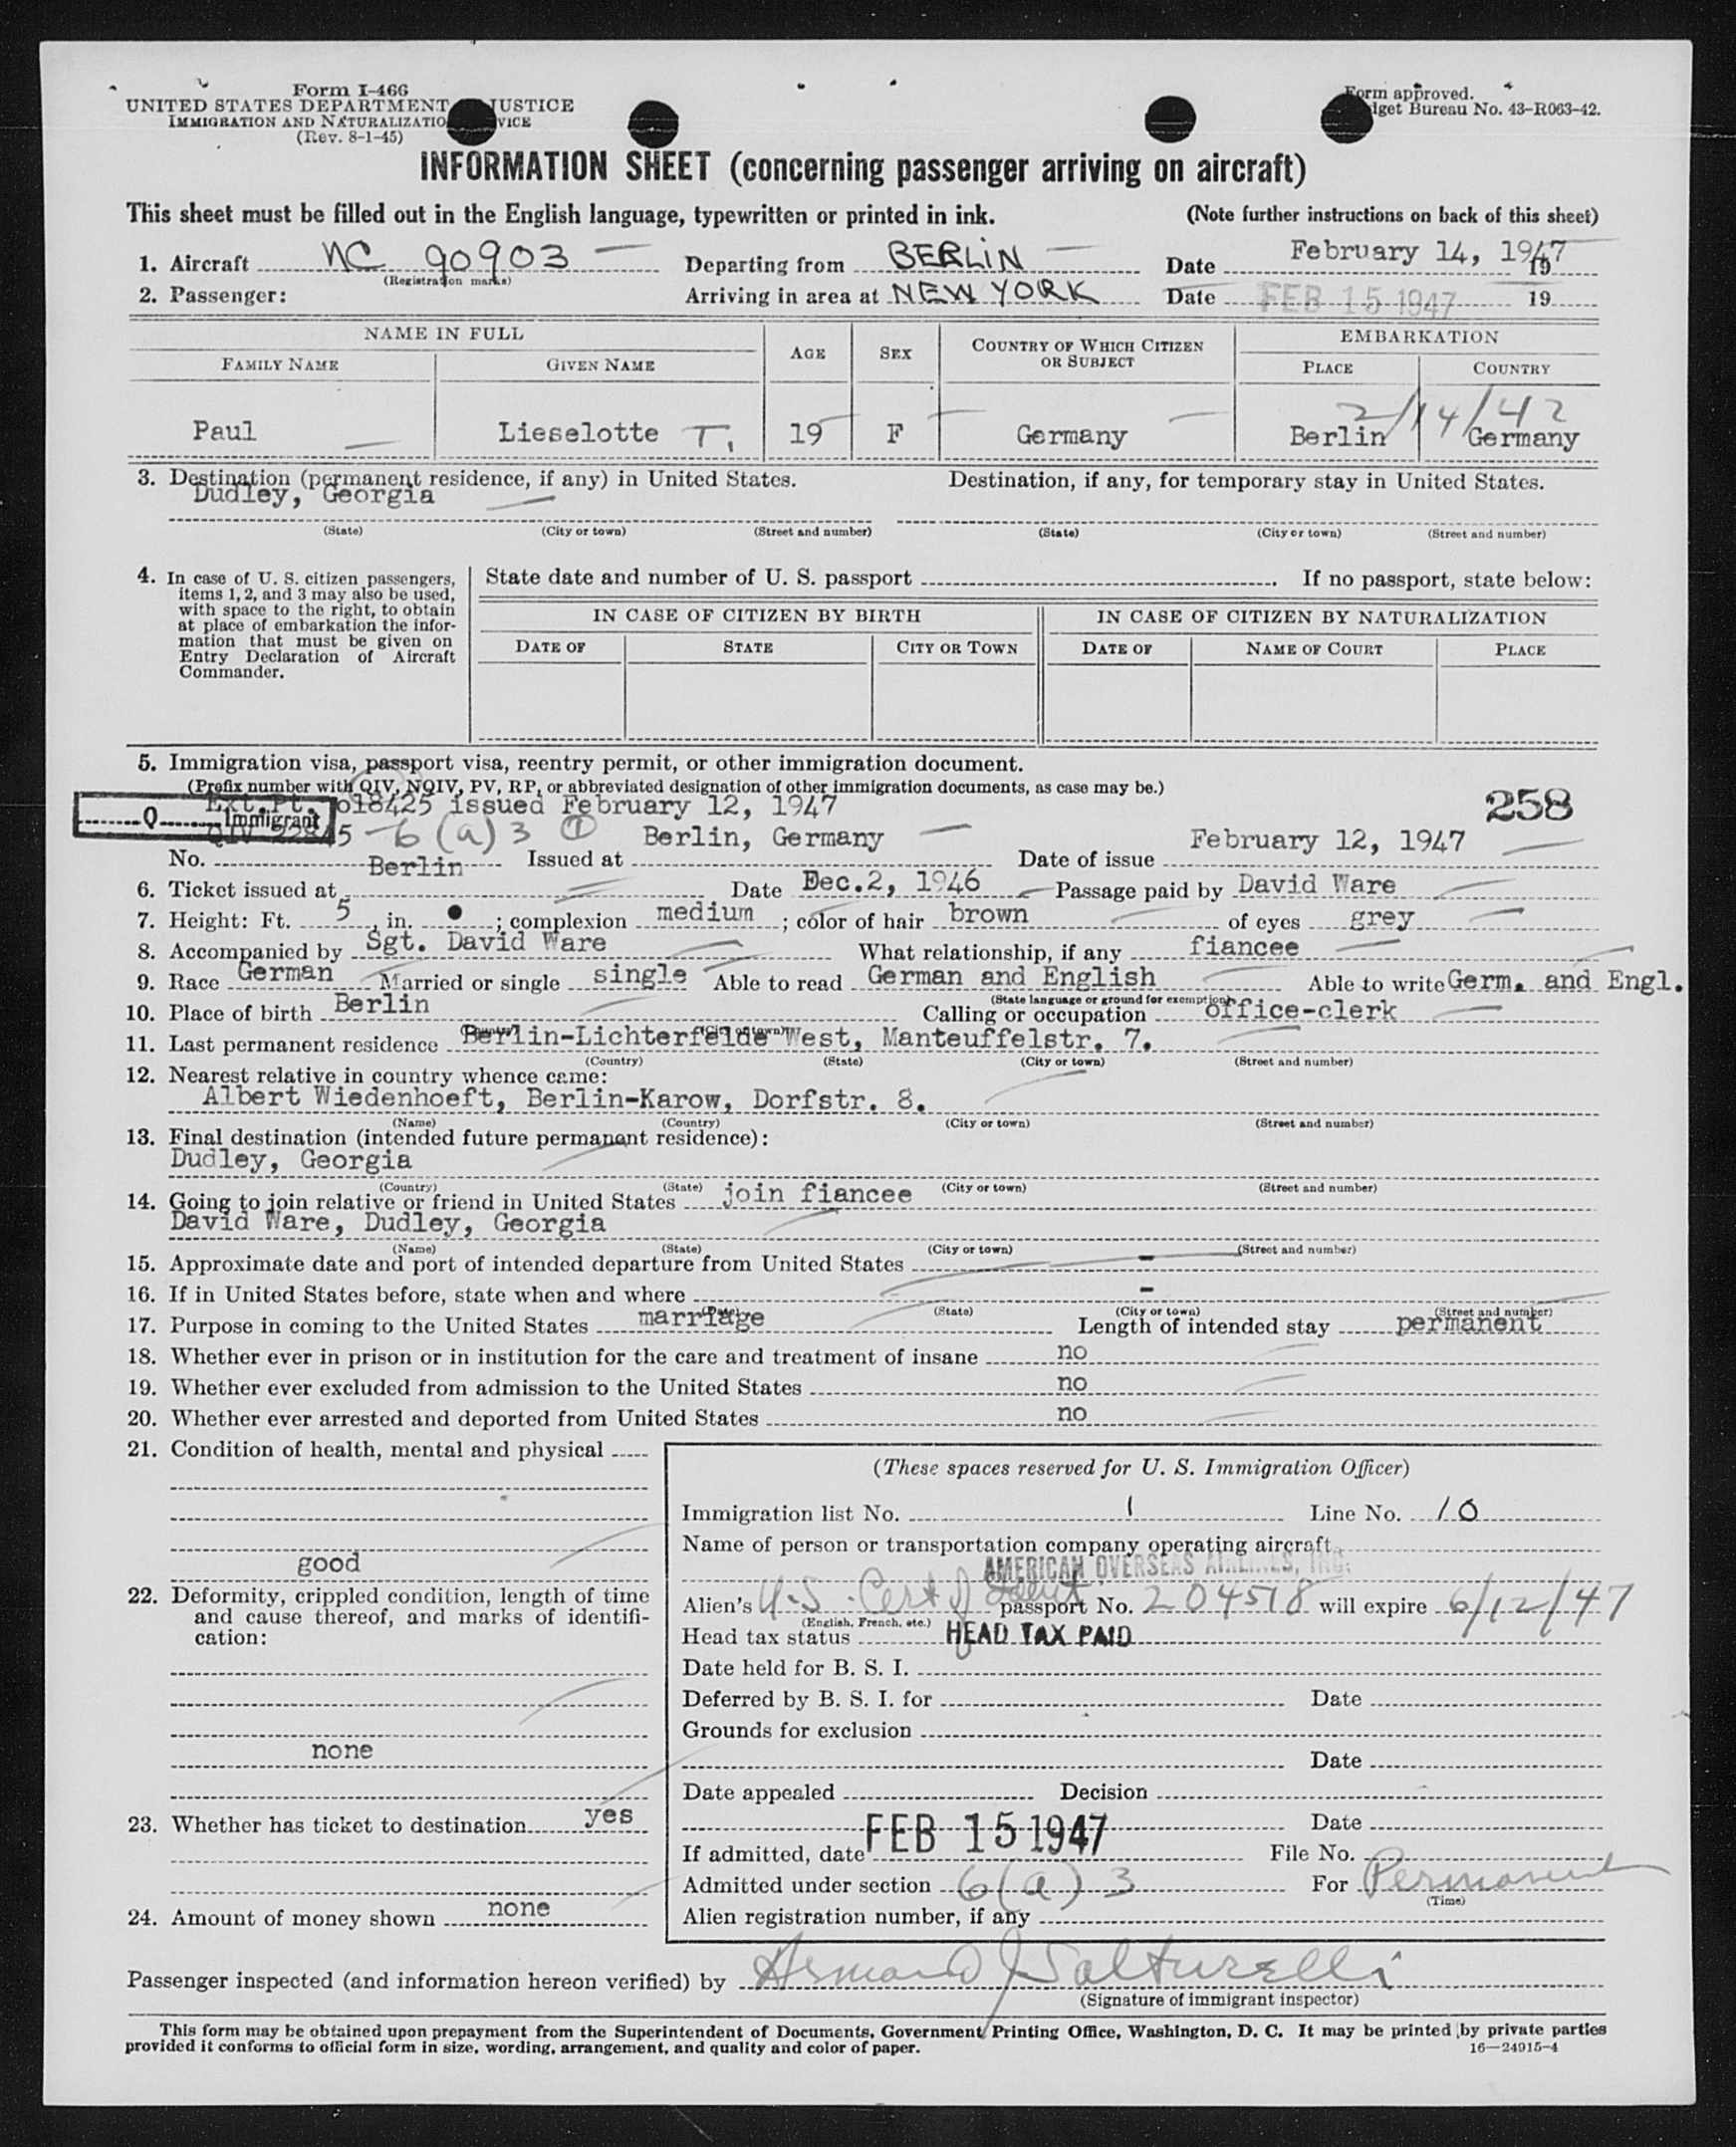 Form I-466
UNITED STATES DEPARTMENT JUSTICE
IMMIGRATION AND NATURALIZATIO VICE
(Rev. 8-1-45)
Form approved.
get Bureau No. 43-R063-42.
INFORMATION SHEET (concerning passenger arriving on aircraft)
This sheet must be filled out in the English language, typewritten or printed in ink. (Note further instructions on back of this sheet)
1. Aircraft NC 90903 Departing from BERLIN Date February 14, 1947 19
(Registration marks)
2. Passenger: Arriving in area at NEW YORK Date FEB 15 1947 19
NAME IN FULL AGE SEX COUNTRY OF WHICH CITIZEN OR SUBJECT EMBARKATION
FAMILY NAME GIVEN NAME PLACE COUNTRY
2/14/42
Paul Lieselotte T. 19 F Germany Berlin Germany
3. Destination (permanent residence, if any) in United States. Destination, if any, for temporary stay in United States.
Dudley, Georgia
(State) (City or town) (Street and number) (State) (City or town) (Street and number)
4. In case of U. S. citizen passengers, items 1, 2, and 3 may also be used, with space to the right, to obtain at place of embarkation the information that must be given on Entry Declaration of Aircraft Commander.
State date and number of U. S. passport . If no passport, state below:
IN CASE OF CITIZEN BY BIRTH IN CASE OF CITIZEN BY NATURALIZATION
DATE OF STATE CITY OR TOWN DATE OF NAME OF COURT PLACE
5. Immigration visa, passport visa, reentry permit, or other immigration document.
(Prefix number with QIV, NQIV, PV, RP, or abbreviated designation of other immigration documents, as case may be.)
Ext.Pt. 018425 issued February 12, 1947 258
Q Immigrant
QIV 22845 - 6 (a) 3 1 Berlin, Germany February 12, 1947
No. Issued at Date of issue
6. Ticket issued at Berlin Date Dec.2, 1946 Passage paid by David Ware
7. Height: Ft. 5 , in. ; complexion medium ; color of hair brown of eyes grey
8. Accompanied by Sgt. David Ware What relationship, if any fiancee
9. Race German Married or single single Able to read German and English Able to write Germ. and Engl.
(State language or ground for exemption)
10. Place of birth Berlin Calling or occupation office-clerk
(Country) (City or town)
11. Last permanent residence Berlin-Lichterfelde West, Manteuffelstr. 7.
(Country) (State) (City or town) (Street and number)
12. Nearest relative in country whence came:
Albert Wiedenhoeft, Berlin-Karow, Dorfstr. 8.
(Name) (Country) (City or town) (Street and number)
13. Final destination (intended future permanent residence):
Dudley, Georgia
(Country) (State) (City or town) (Street and number)
14. Going to join relative or friend in United States join fiancee
David Ware, Dudley, Georgia
(Name) (State) (City or town) (Street and number)
15. Approximate date and port of intended departure from United States -
16. If in United States before, state when and where -
(Date) (State) (City or town) (Street and number)
17. Purpose in coming to the United States marriage Length of intended stay permanent
18. Whether ever in prison or in institution for the care and treatment of insane no
19. Whether ever excluded from admission to the United States no
20. Whether ever arrested and deported from United States no
21. Condition of health, mental and physical
good
22. Deformity, crippled condition, length of time and cause thereof, and marks of identification:
none
23. Whether has ticket to destination yes
24. Amount of money shown none
(These spaces reserved for U. S. Immigration Officer)
Immigration list No. 1 Line No. 10
Name of person or transportation company operating aircraft
AMERICAN OVERSEAS AIRLINES, INC.
Alien's U.S. Cert of Ident passport No. 204518 will expire 6/12/47
(English, French, etc.)
Head tax status HEAD TAX PAID
Date held for B. S. I.
Deferred by B. S. I. for Date
Grounds for exclusion
Date
Date appealed Decision
Date
If admitted, date FEB 15 1947 File No.
Admitted under section 6(a)3 For Permanent
(Time)
Alien registration number, if any
Passenger inspected (and information hereon verified) by Armand J Salturelli
(Signature of immigrant inspector)
This form may be obtained upon prepayment from the Superintendent of Documents, Government Printing Office, Washington, D. C. It may be printed by private parties
provided it conforms to official form in size, wording, arrangement, and quality and color of paper. 16—24915-4